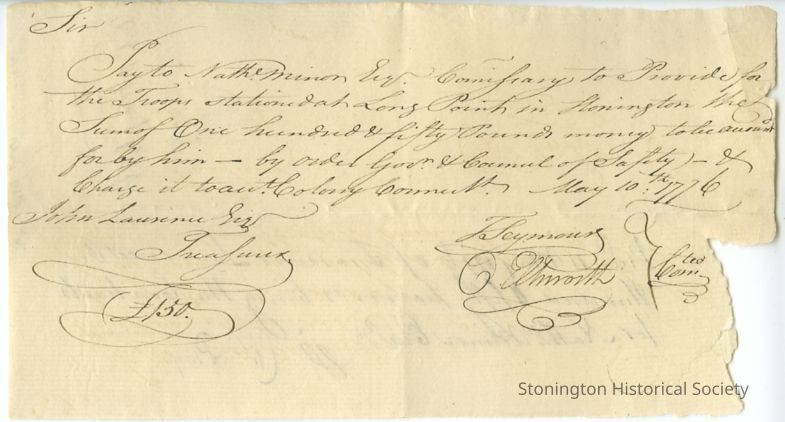 Sir
Pay to Nath.l Minor Esq.r Comissary to Provide for
the Troops stationed at Long Point in Stonington the
Sum of One hundred & fifty Pounds money to be accountd
for by him — by order Gov.r & Council of Safety — &
Charge it to acct. Colony Connectt. May 10.th 1776
John Lawrence Esqr
Treasurer
£150.
T Seymour
O Ellsworth
Com.tee
Stonington Historical Society